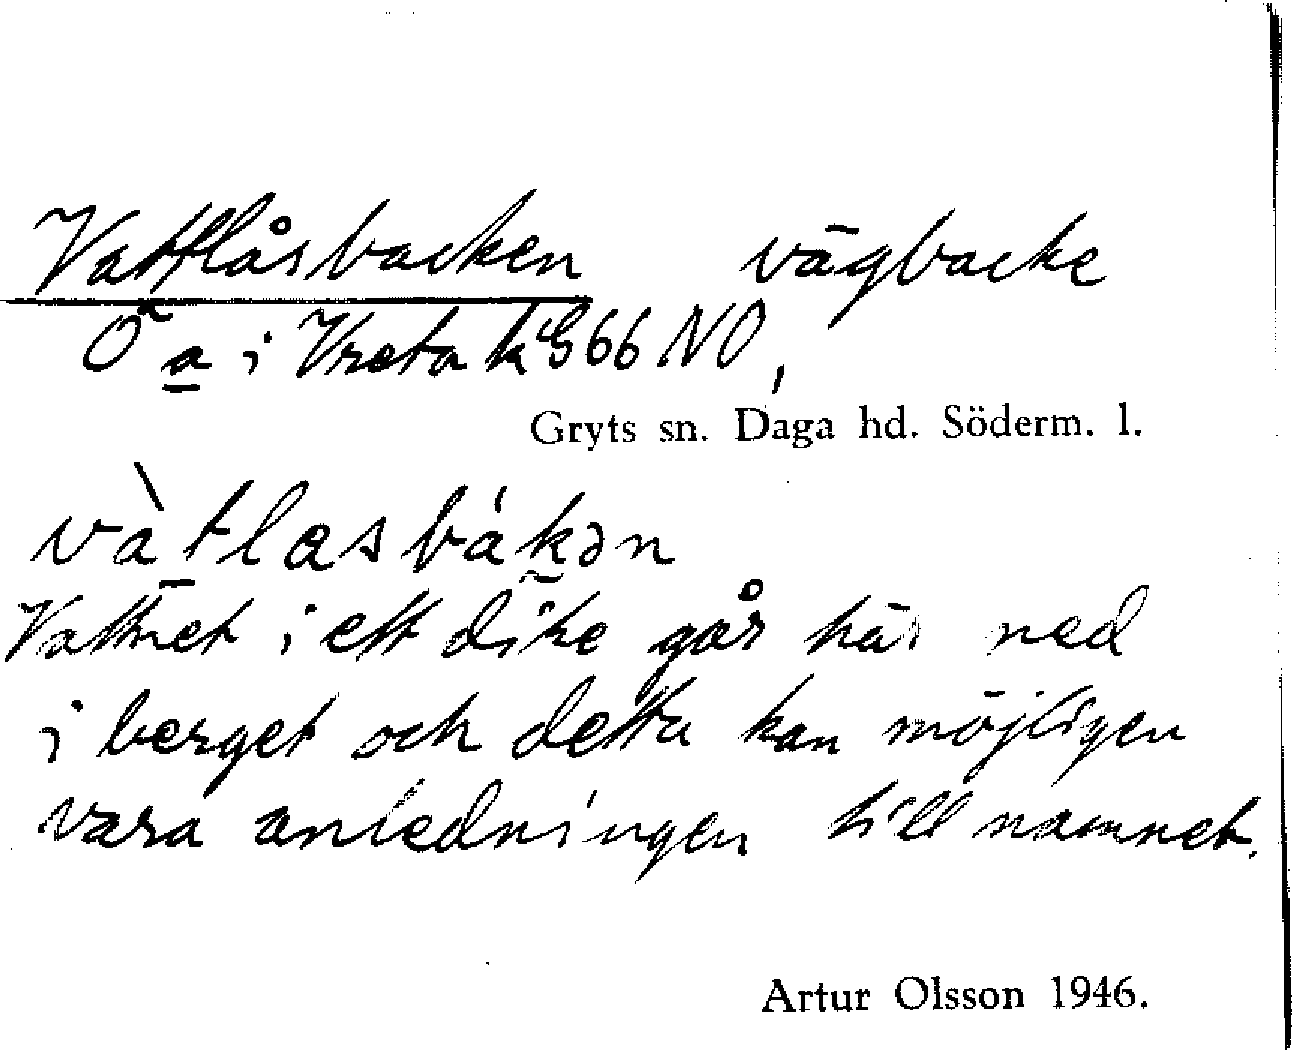 Vattlåsbacken vägbacke
Ö a i Vreta k 966 NO,
Gryts sn. Daga hd. Söderm. l.
vàtlasbákən
Vattnet i ett dike går här ned
i berget och detta kan möjligen
vara anledningen till namnet.
Artur Olsson 1946.